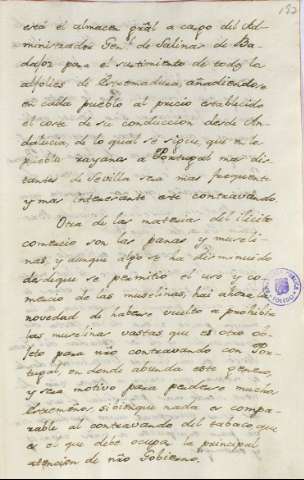 132
está el almacen gral a cargo del Ad-
ministrador Genl. de Salinas de Ba-
dajoz para el surtimiento de todos los
alfolies de Extremadura, añadiendose
en cada pueblo al precio establecido
el coste de su conduccion desde An-
dalucia, de lo qual se sigue, que en los
pueblos rayanos a Portugal mas dis-
tantes de Sevilla sera mas frequente
y mas interesante este contravando.
Otra de las materias del ilicito
comercio son las panas, y museli-
nas, y aunque algo se ha disminuido
desde que se permitió el uso y co-
mercio de las muselinas, hai ahora la
novedad de haberse vuelto a prohibir
las muselinas vastas que es otro ob-
jeto para nño contravando con Por-
tugal, en donde abunda este genero,
y sera motivo para perderse muchos
Extremeños, si bien que nada es compa-
rable al contravando del tabaco, que
es el que debe ocupar la principal
atencion de nño Gobierno.
TOLEDO